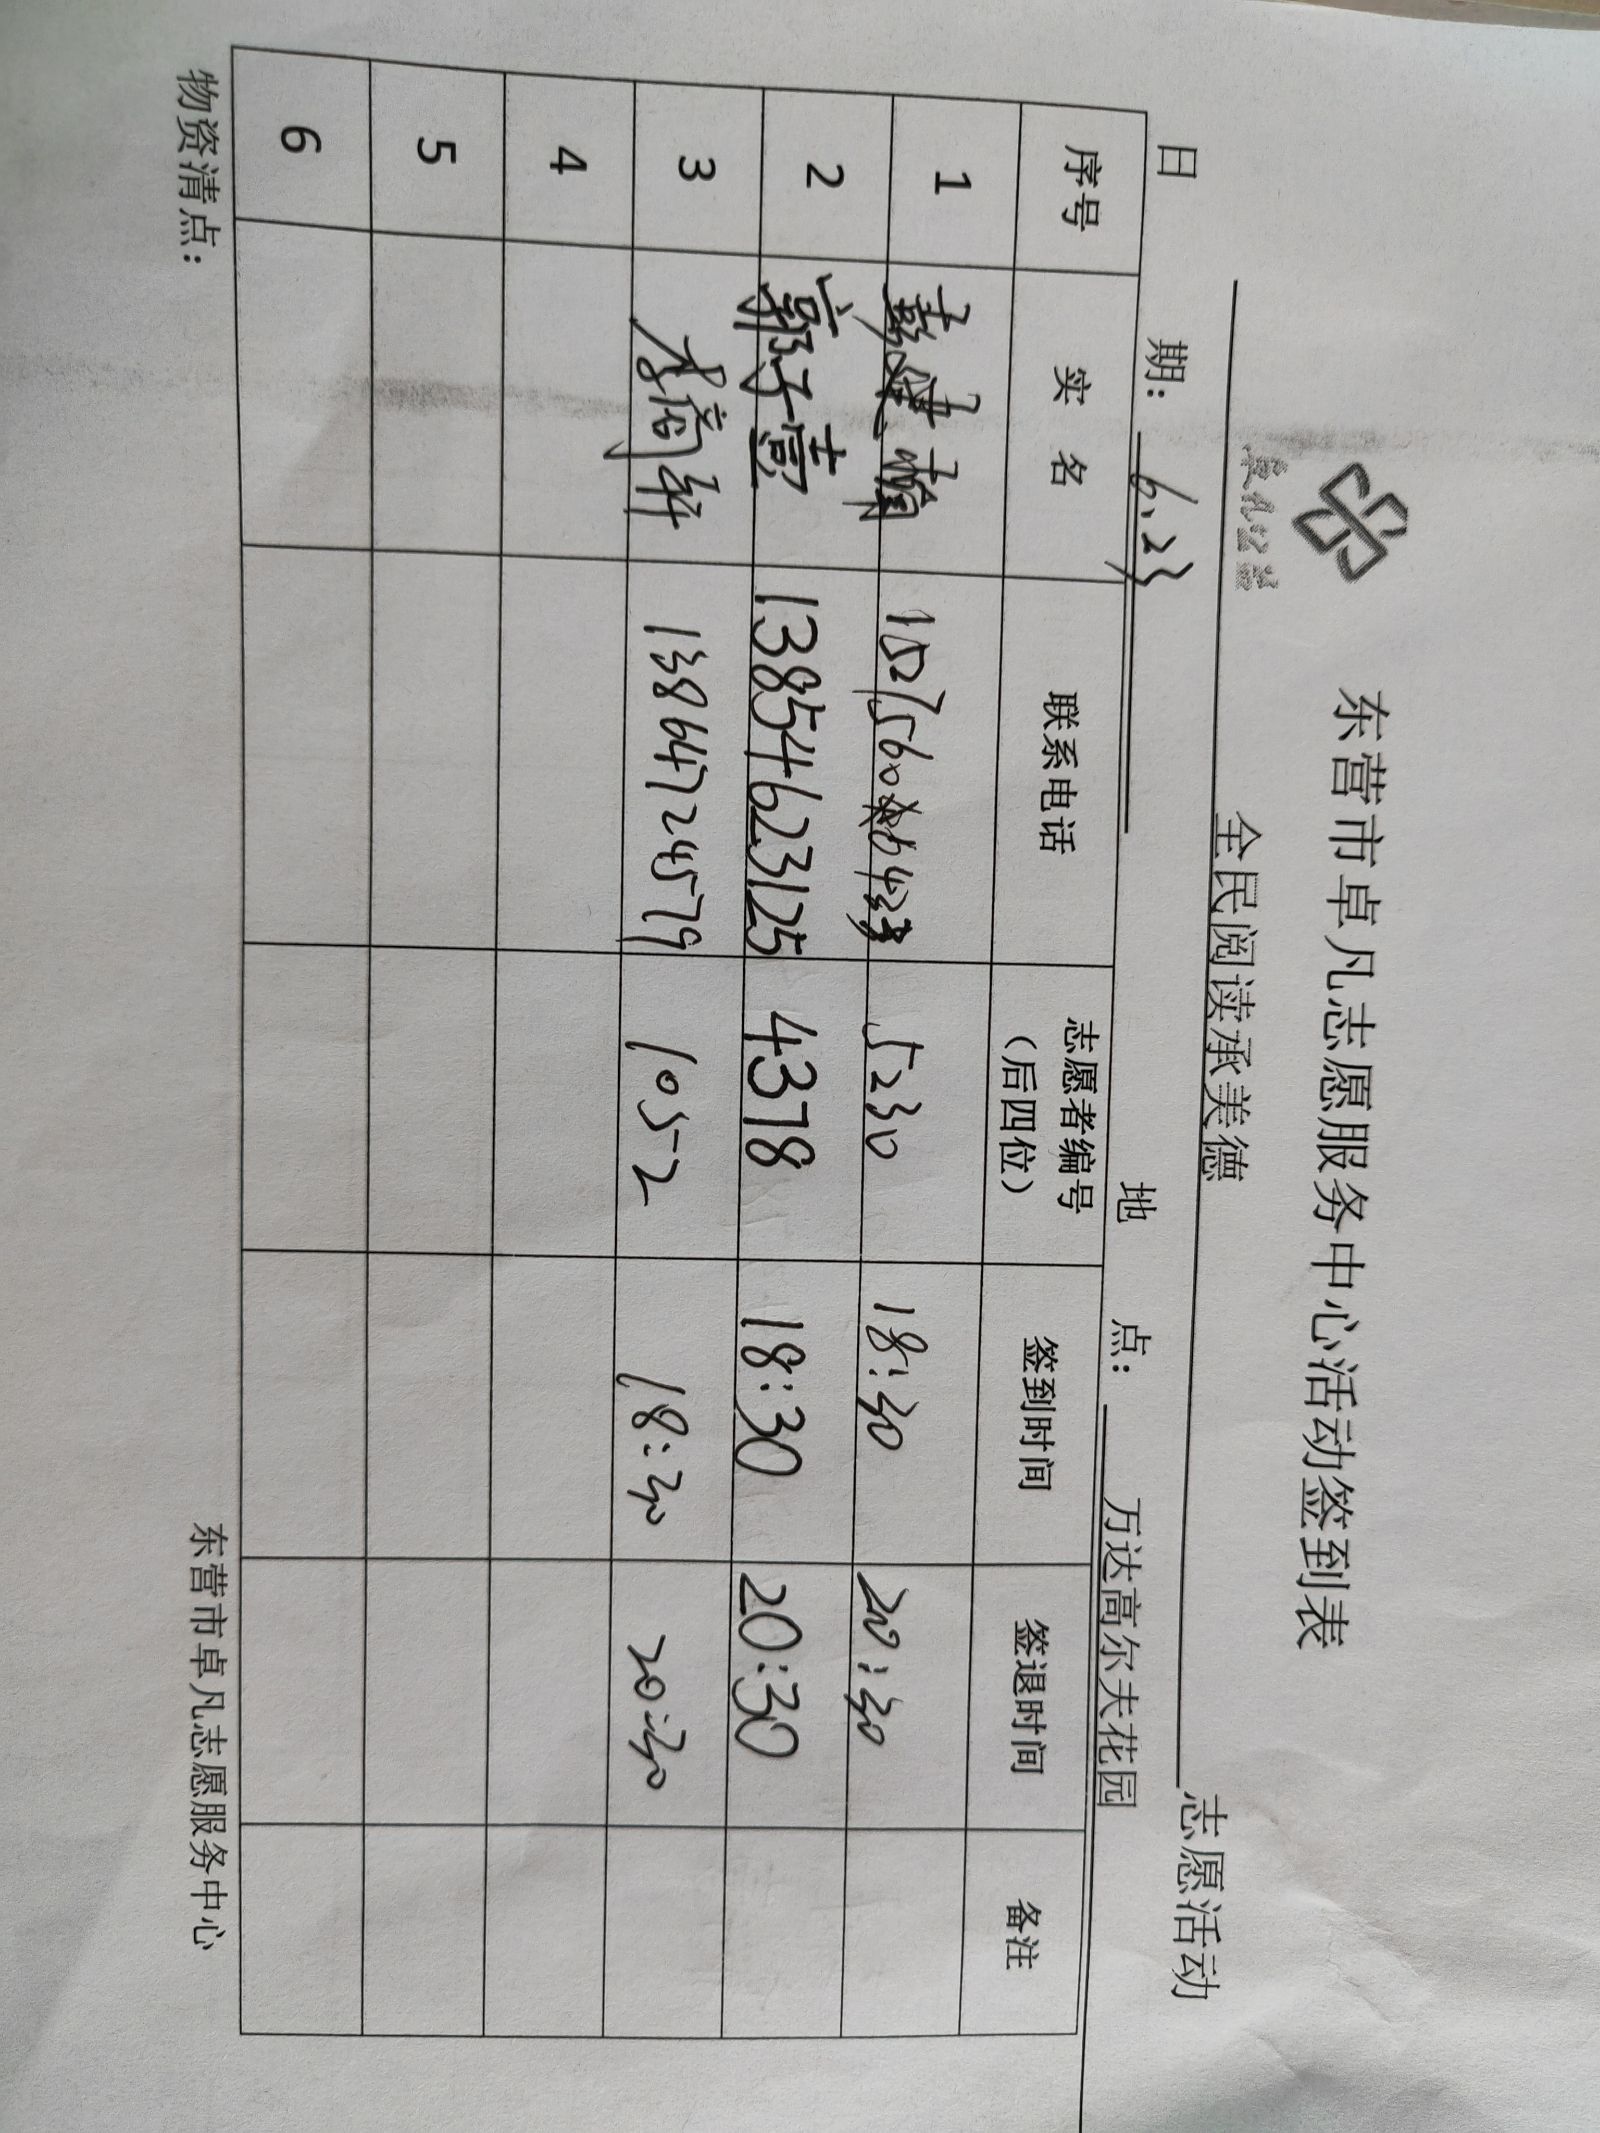 东营市卓凡志愿服务中心活动签到表
卓凡公益
全民阅读承美德 志愿活动
日 期: 6.23 地 点: 万达高尔夫花园
序号 实 名 联系电话 志愿者编号（后四位） 签到时间 签退时间 备注
1 5230 18:30 20:30
2 郭子壹 13854623125 4378 18:30 20:30
3 13864724579 1052 18:30 20:30
4
5
6
物资清点: 东营市卓凡志愿服务中心